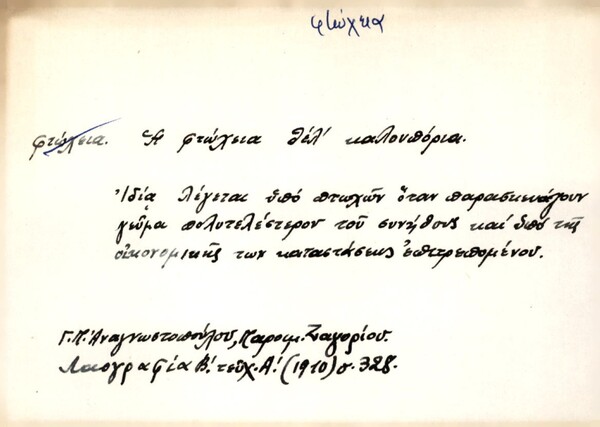 φτώχεια
φτώχεια. Ἡ φτώχεια θέλ' καλουπόρια.
Ἰδίᾳ λέγεται ὑπό πτωχῶν ὅταν παρασκευάζουν
γεῦμα πολυτελέστερον τοῦ συνήθους καί ὑπό τῆς
οἰκονομικῆς των καταστάσεως ἐπιτρεπομένου.
Γ.Π. Ἀναγνωστοπούλου, Παροιμ. Ζαγορίου.
Λαογραφία Β'. τεῦχ. Α'. (1910) σ. 328.